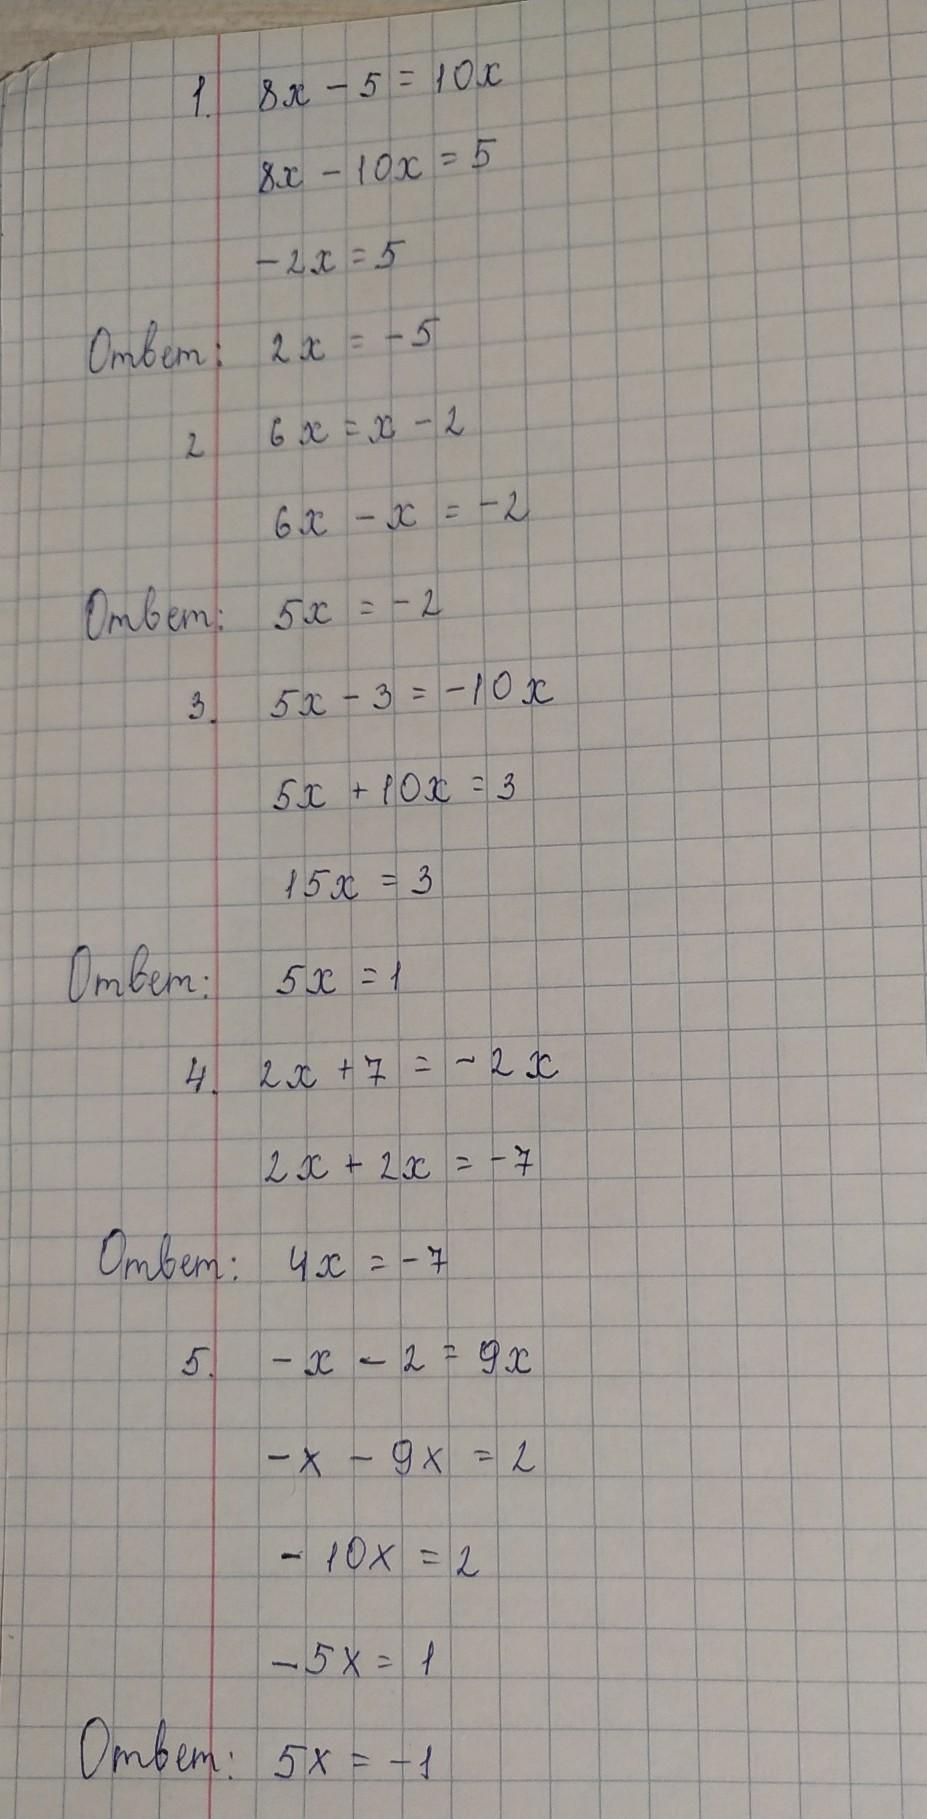 1. 8x - 5 = 10x
8x - 10x = 5
-2x = 5
Ответ: 2x = -5
2 6x = x - 2
6x - x = -2
Ответ: 5x = -2
3. 5x - 3 = -10x
5x + 10x = 3
15x = 3
Ответ: 5x = 1
4. 2x + 7 = -2x
2x + 2x = -7
Ответ: 4x = -7
5. -x - 2 = 9x
-x - 9x = 2
-10x = 2
-5x = 1
Ответ: 5x = -1